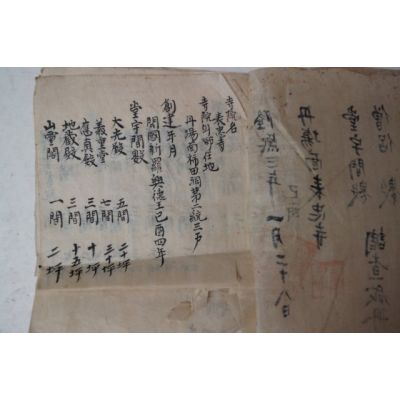 寺院名
表忠寺
寺院所在地
丹場面柿田洞第二統三戶
創建年月
開國新羅興德王己酉四年
堂宇間數
大光殿 五間 二十坪
義重堂 七間 三十坪
應真殿 三間 十坪
地藏殿 三間 十五坪
山靈閣 一間 二坪
隆熙三年 一月二十八日
丹場面表忠寺
堂宇間數